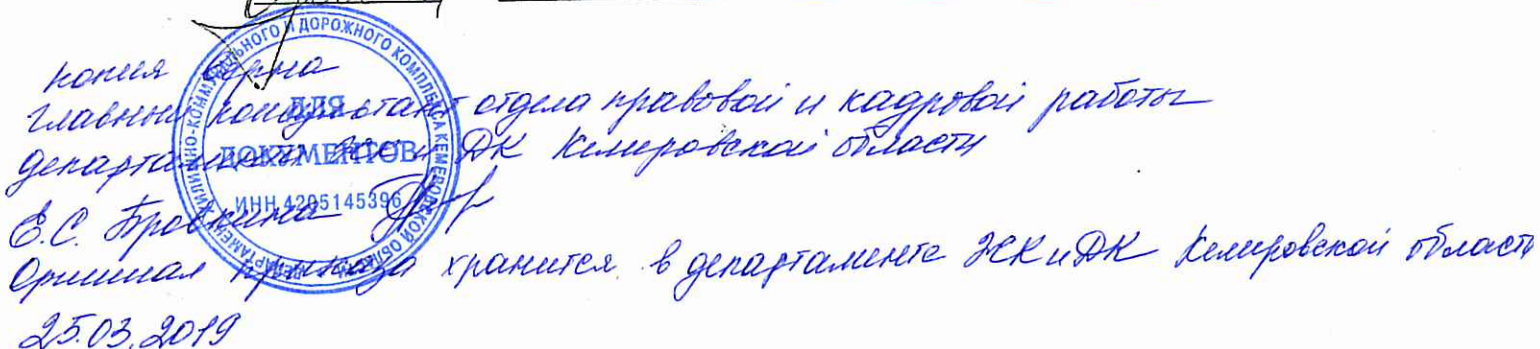 копия верна
главный консультант отдела правовой и кадровой работы
департамента ЖК и ДК Кемеровской области
Е.С. Бровкина
Оригинал приказа хранится в департаменте ЖКиДК Кемеровской области
25.03.2019
ЖИЛИЩНО-КОММУНАЛЬНОГО И ДОРОЖНОГО КОМПЛЕКСА КЕМЕРОВСКОЙ ОБЛАСТИ
ДЕПАРТАМЕНТ
ДЛЯ
ДОКУМЕНТОВ
ИНН 4205145396